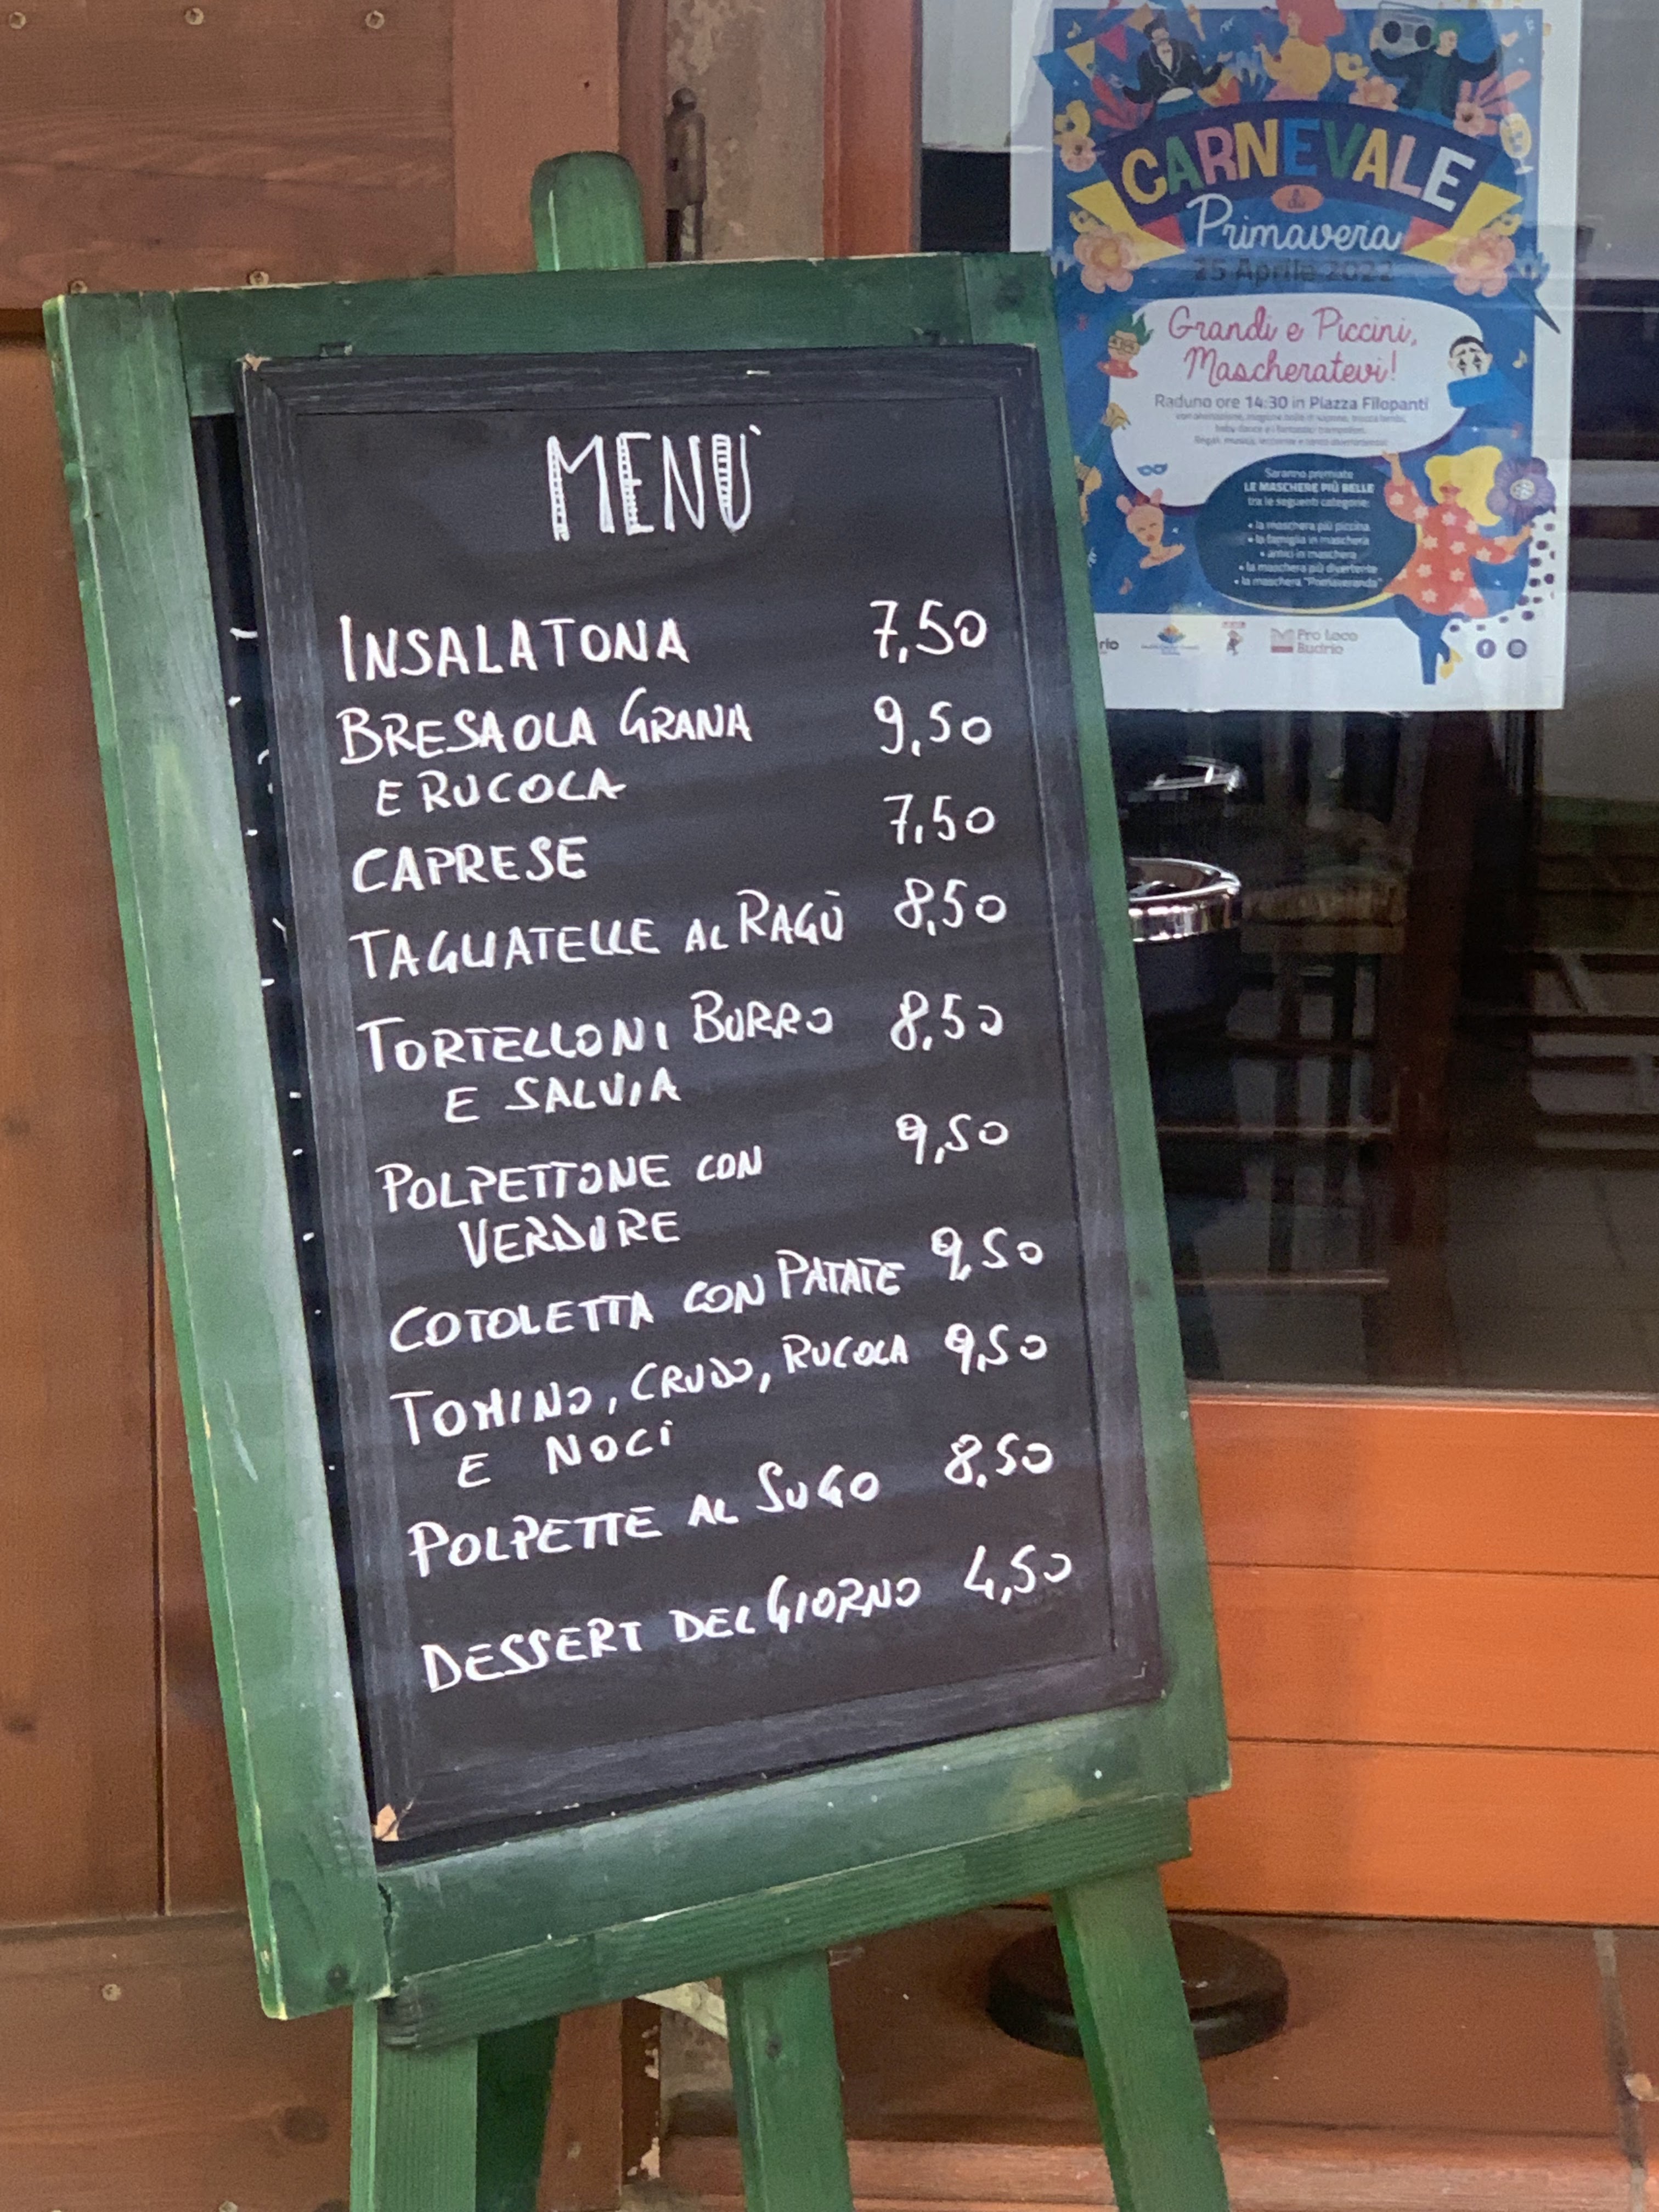 MENÙ
INSALATONA 7,50
BRESAOLA GRANA 9,50
E RUCOLA
CAPRESE 7,50
TAGLIATELLE AL RAGÙ 8,50
TORTELLONI BURRO 8,50
E SALVIA
POLPETTONE CON 9,50
VERDURE
COTOLETTA CON PATATE 9,50
TOMINO, CRUDO, RUCOLA 9,50
E NOCI
POLPETTE AL SUGO 8,50
DESSERT DEL GIORNO 4,50
CARNEVALE
di
Primavera
25 Aprile 2022
Grandi e Piccini,
Mascheratevi!
Raduno ore 14:30 in Piazza Filopanti
Saranno premiate
LE MASCHERE PIÙ BELLE
tra le seguenti categorie:
• la maschera più piccina
• la famiglia in maschera
• amici in maschera
• la maschera più divertente
• la maschera "Primaveranda"
Pro Loco
Budrio